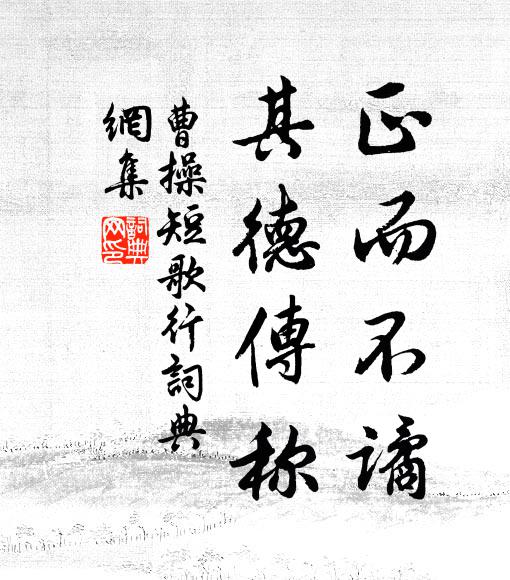 正而不譎
其德傳称
曹操短歌行詞典
網集
詞典
网印